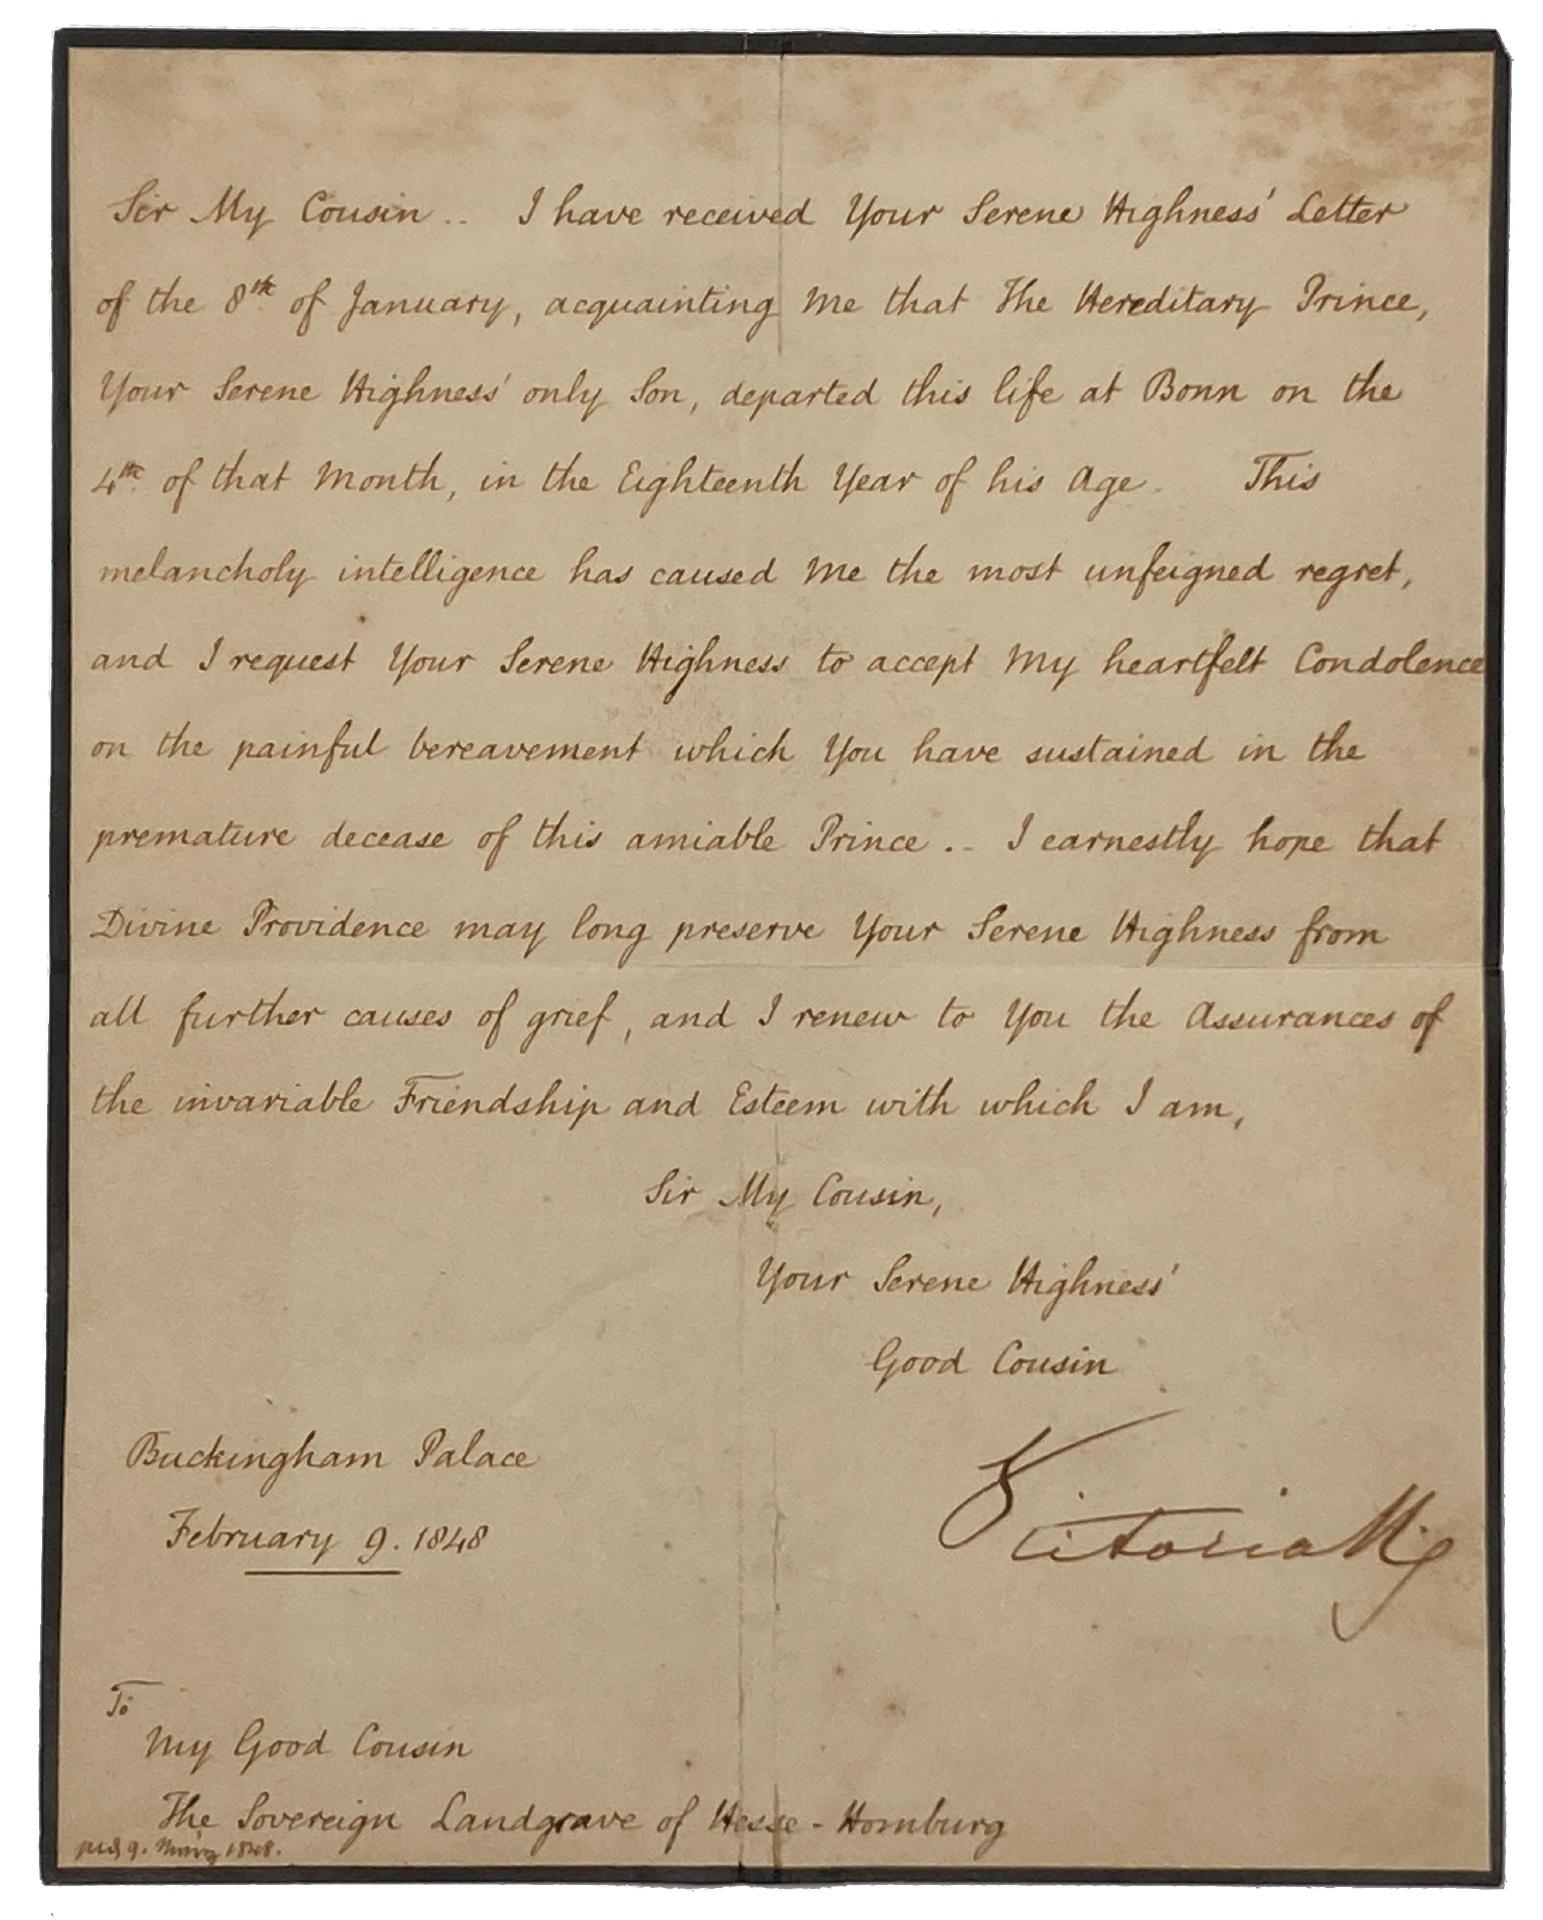 Sir My Cousin.. I have received Your Serene Highness' Letter
of the 8th of January, acquainting Me that The Hereditary Prince,
Your Serene Highness' only Son, departed this life at Bonn on the
4th of that Month, in the Eighteenth Year of his Age. This
melancholy intelligence has caused Me the most unfeigned regret,
and I request Your Serene Highness to accept My heartfelt Condolence
on the painful bereavement which You have sustained in the
premature decease of this amiable Prince.. I earnestly hope that
Divine Providence may long preserve Your Serene Highness from
all further causes of grief, and I renew to You the Assurances of
the invariable Friendship and Esteem with which I am,
Sir My Cousin,
Your Serene Highness'
Good Cousin
Buckingham Palace
February 9. 1848
Victoria R
To
My Good Cousin
The Sovereign Landgrave of Hesse-Homburg
9. März 1848.